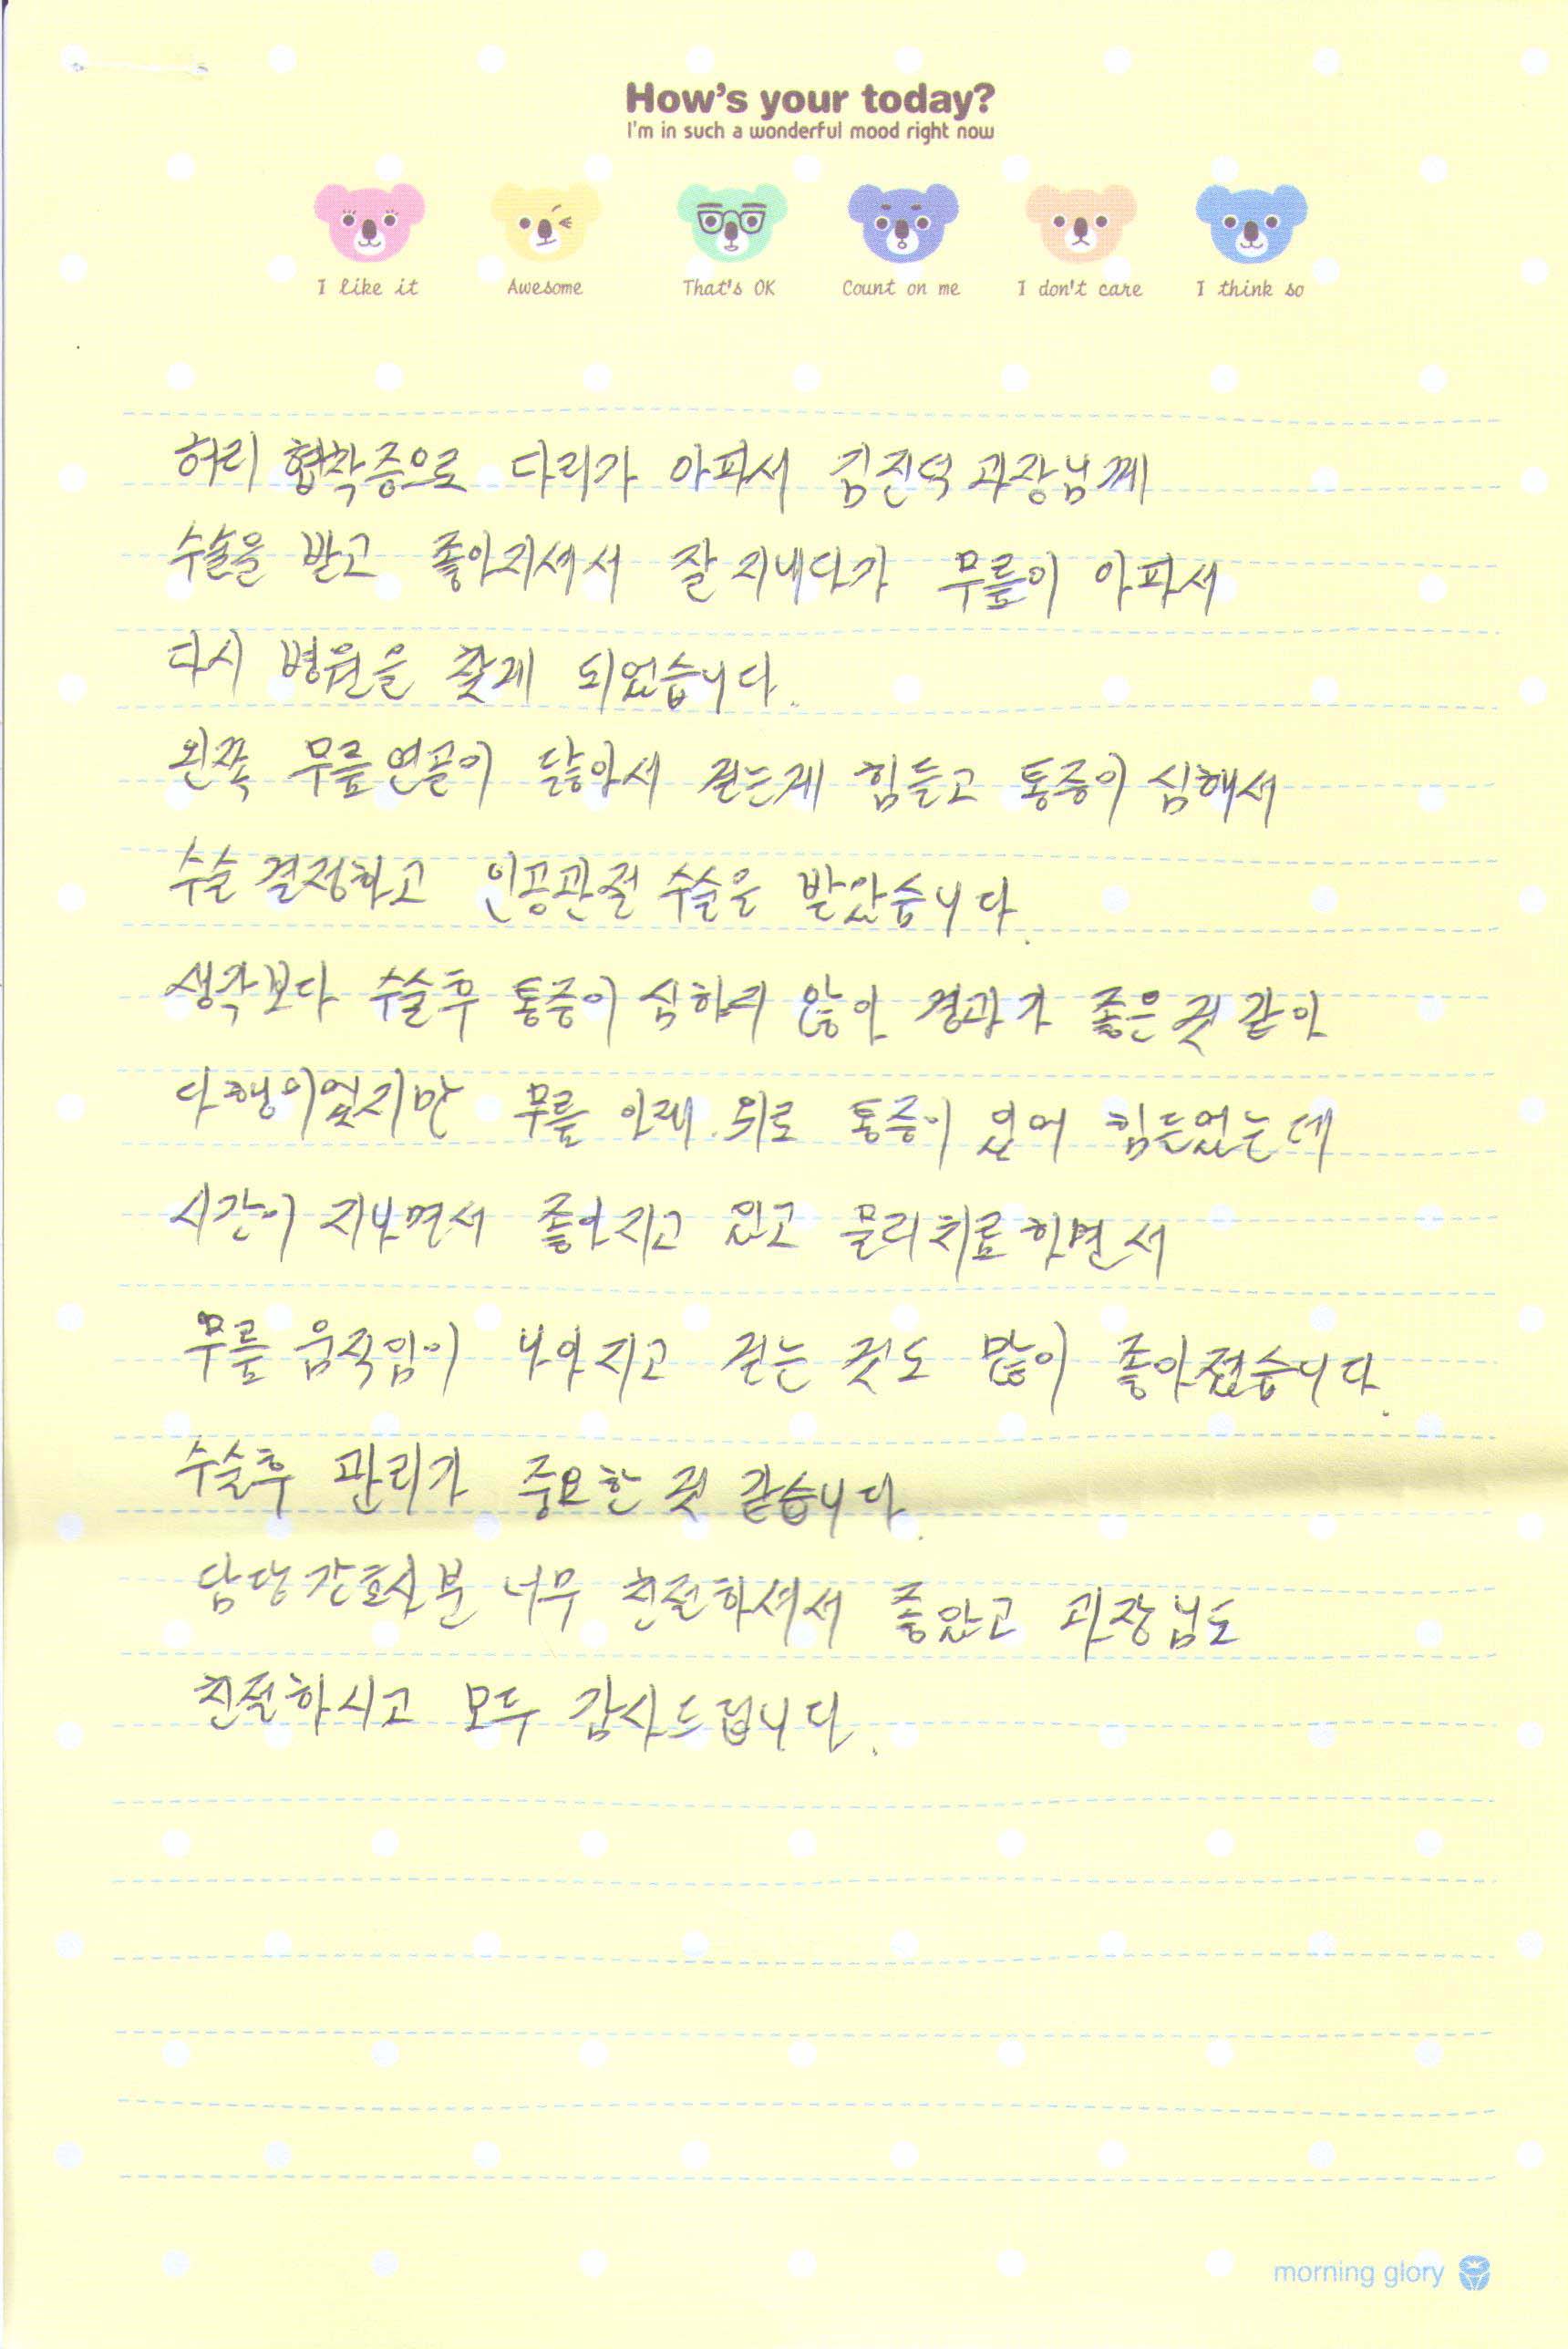 How's your today?
I'm in such a wonderful mood right now
I like it Awesome That's OK Count on me I don't care I think so
허리 협착증으로 다리가 아파서 김진덕 과장님께
수술을 받고 좋아지셔서 잘 지내다가 무릎이 아파서
다시 병원을 찾게 되었습니다.
왼쪽 무릎연골이 닳아서 걷는게 힘들고 통증이 심해서
수술 결정하고 인공관절 수술을 받았습니다.
생각보다 수술후 통증이 심하지 않아 경과가 좋은것 같아
다행이었지만 무릎 아래.뒤로 통증이 있어 힘들었는데
시간이 지나면서 좋아지고 있고 물리치료하면서
무릎 움직임이 나아지고 걷는 것도 많이 좋아졌습니다.
수술후 관리가 중요한 것 같습니다.
담당간호사분 너무 친절하셔서 좋았고 과장님도
친절하시고 모두 감사드립니다.
morning glory